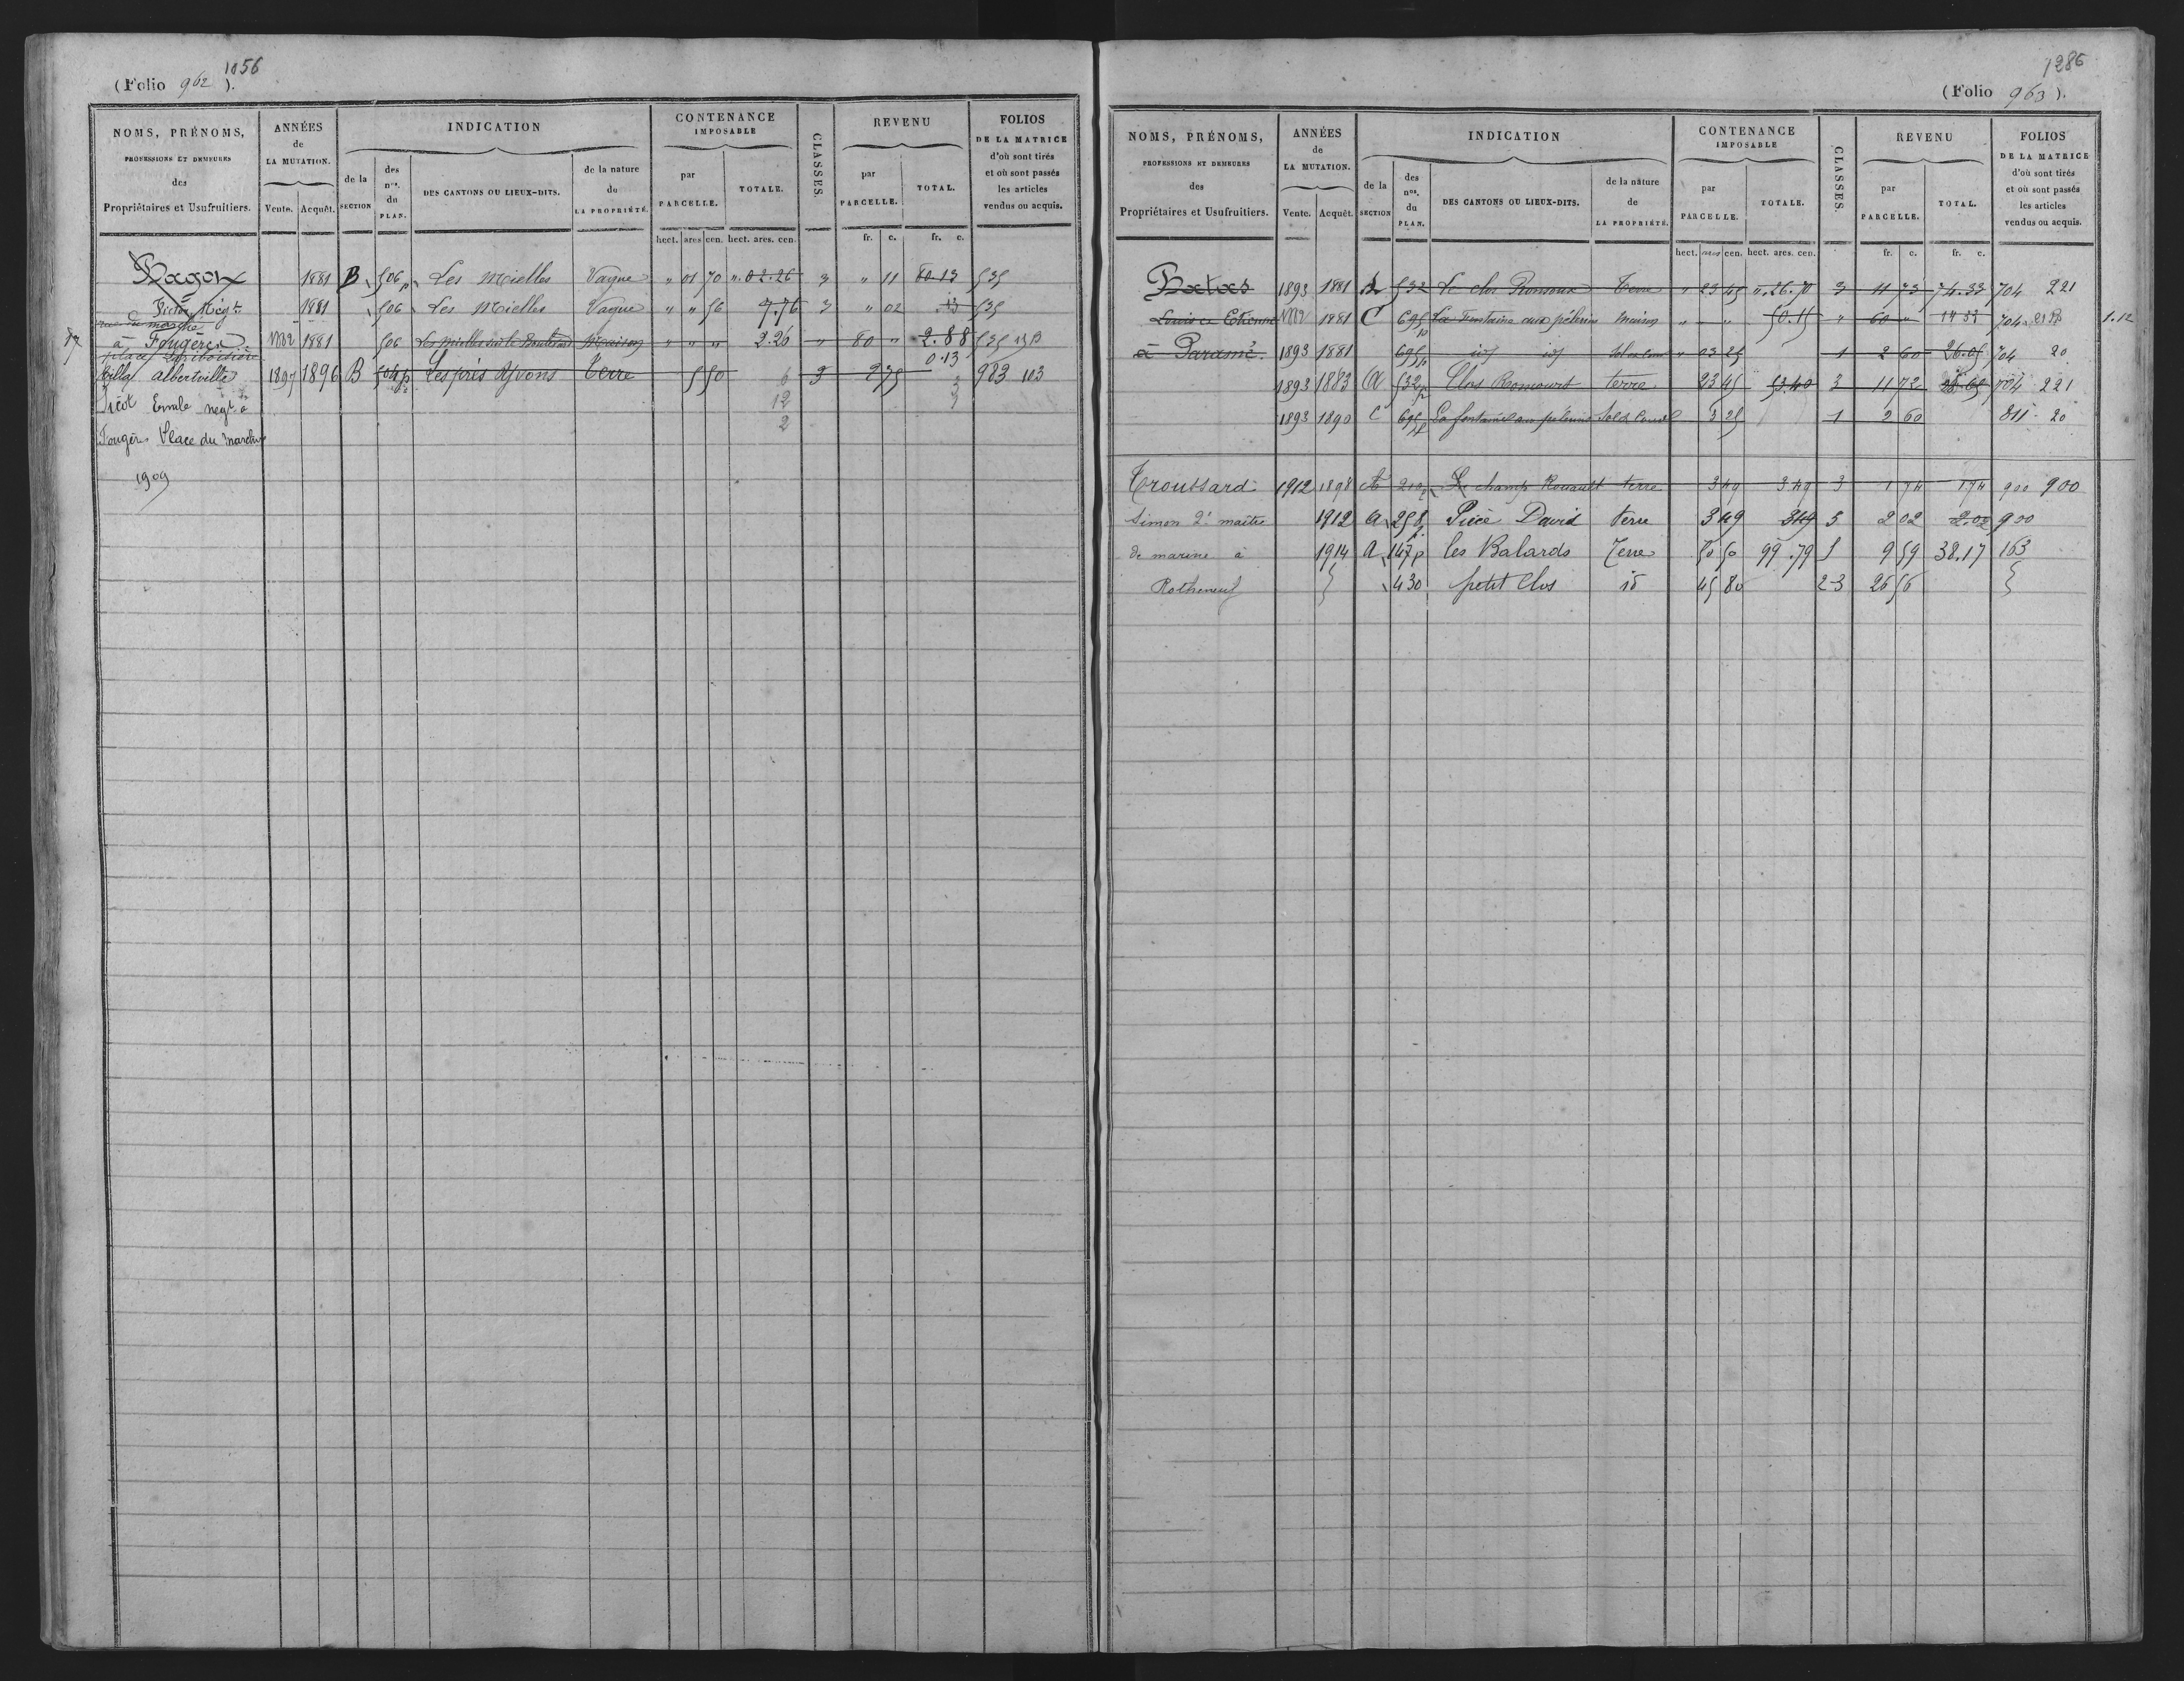 1056
(Folio 962 ).
NOMS, PRÉNOMS,
PROFESSIONS ET DEMEURES
des
Propriétaires et Usufruitiers.
ANNÉES
de
LA MUTATION.
Vente. Acquêt.
INDICATION
de la
SECTION
des
nos.
du
PLAN.
DES CANTONS OU LIEUX-DITS.
de la nature
de
LA PROPRIÉTÉ.
CONTENANCE
IMPOSABLE
par
PARCELLE.
TOTALE.
CLASSES.
REVENU
par
PARCELLE.
TOTAL.
FOLIOS
DE LA MATRICE
d'où sont tirés
et où sont passés
les articles
vendus ou acquis.
hect. ares cen. hect. ares. cen. fr. c. fr. c.
1881 B 506p Les Mielles Vague " 01 70 ". 02.26 3 " 11 80.13 535
Victor Négt 1881 506 Les Mielles Vague " " 56 7.76 3 " 02 .13 535
rue du marché
à Fougères 1882 1881 506 Les Mielles sur le Maison " " " 2.26 " 80 " 2.88 535
place
0.13
Villa Albertville 1897 1896 B 504p Les prés Terre 5 50 6 3 2 75 3 983 103
Emile negt à 12 3
Fougères Place du Marché 2
1909
1286
(Folio 963 ).
NOMS, PRÉNOMS,
PROFESSIONS ET DEMEURES
des
Propriétaires et Usufruitiers.
ANNÉES
de
LA MUTATION.
Vente. Acquêt.
INDICATION
de la
SECTION
des
nos.
du
PLAN.
DES CANTONS OU LIEUX-DITS.
de la nature
de
LA PROPRIÉTÉ.
CONTENANCE
IMPOSABLE
par
PARCELLE.
TOTALE.
CLASSES.
REVENU
par
PARCELLE.
TOTAL.
FOLIOS
DE LA MATRICE
d'où sont tirés
et où sont passés
les articles
vendus ou acquis.
hect. ares cen. hect. ares. cen. fr. c. fr. c.
Batas 1893 1881 A 532 Le clos Romoux Terre " 23 45 ". 26.70 3 11 73 74.33 704 221
Louis Etienne 1882 1881 C 695p La Fontaine aux pélerins Maison " " " 50.15 " 60 " 14 33 704 1.12
à Paramé. 1893 1881 695p id id " 03 25 1 2 60 26.05 704 20
1893 1883 A 532p Clos Romoux terre 23 45 53.40 3 11 72 704 221
1893 1890 C 695p La fontaine aux pelerins 3 25 1 2 60 811 20
Troussard 1912 1898 A 210p Le champ Rouault terre 3 49 3 49 3 1 74 1 74 900 900
Simon 2e maître 1912 A 258p Pièce David terre 3 49 3 49 3 2 02 2.02 900
de marine à 1914 A 147p les Balards Terre 50 50 99.79 5 9 59 38.17 163
Rotheneuf 430 petit Clos id 45 80 2-3 26 56